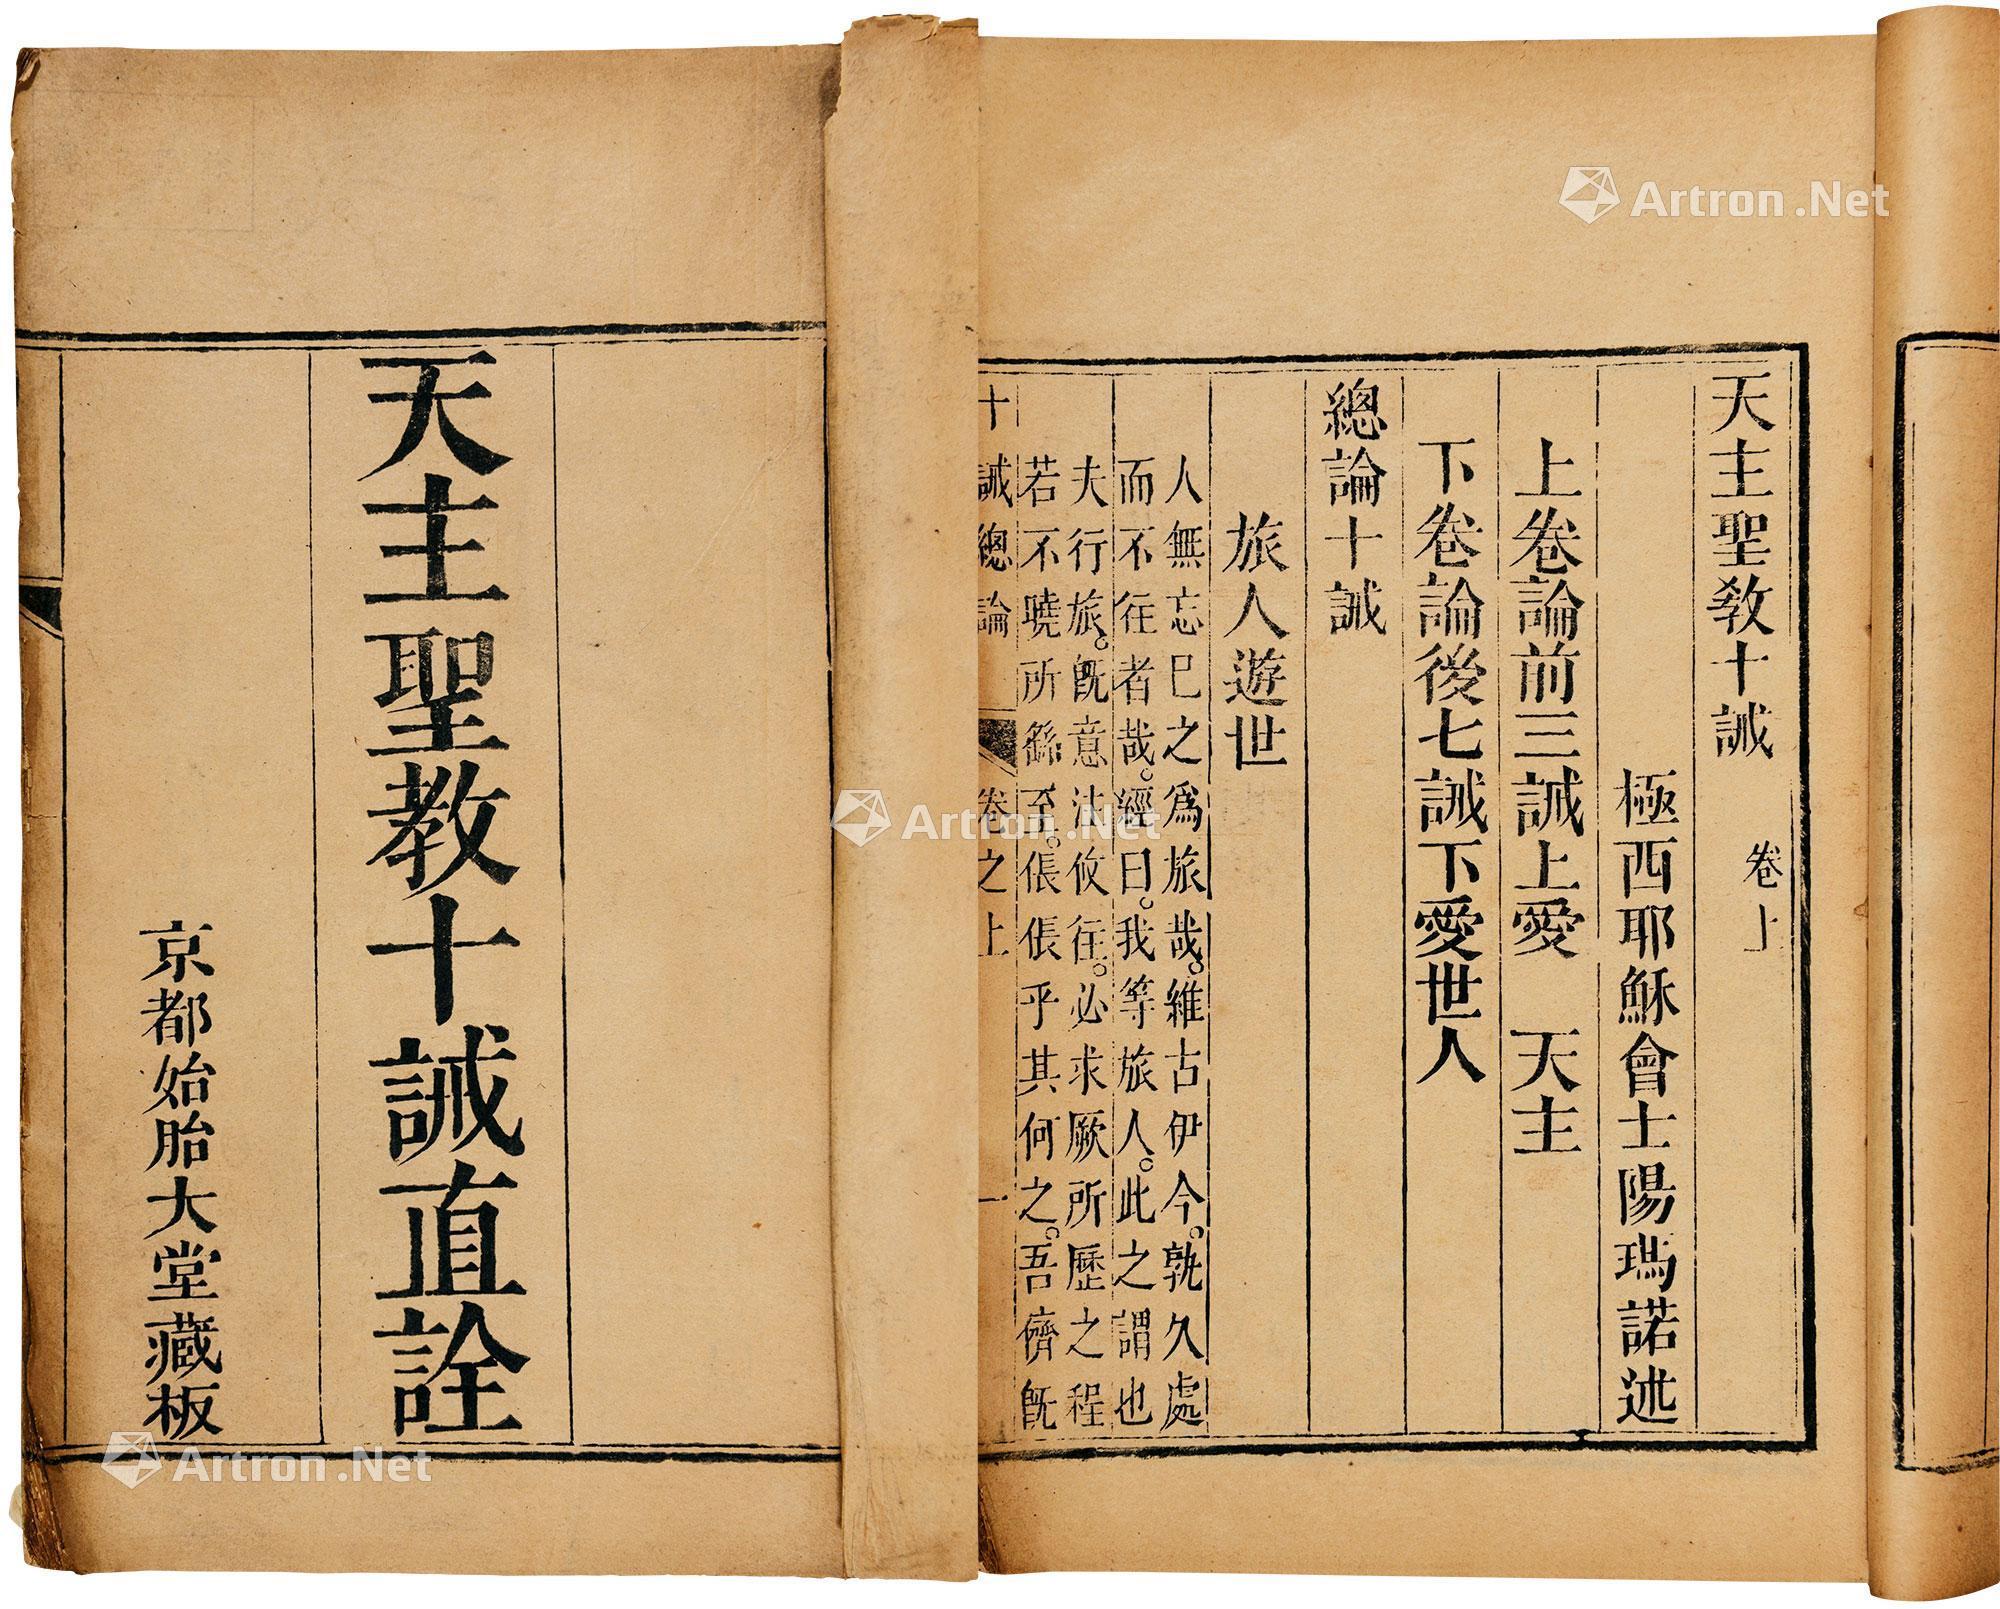 天主聖教十誡 卷上
極西耶穌會士陽瑪諾述
上卷論前三誡上愛 天主
下卷論後七誡下愛世人
總論十誡
旅人遊世
人無忘巳之爲旅哉。維古伊今。孰久處
而不徃者哉。經曰。我等旅人。此之謂也
夫行旅。旣意法攸徃。必求厥所歷之程
若不曉所繇至。倀倀乎其何之。吾儕旣
十誡總論 卷之上 一
天主聖教十誡直詮
京都始胎大堂藏板
Artron.Net
Artron.Net
Artron.Net